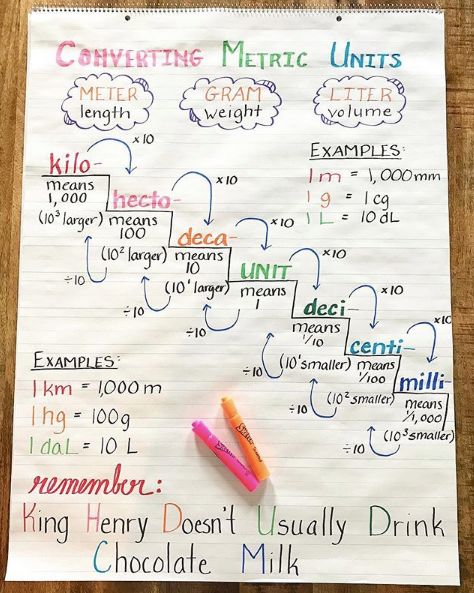 CONVERTING METRIC UNITS
METER
length
GRAM
weight
LITER
volume
EXAMPLES:
1 m = 1,000 mm
1 g = 1 cg
1 L = 10 dL
kilo-
means
1,000
(10³ larger)
x10
÷10
hecto-
means
100
(10² larger)
x10
÷10
deca-
means
10
(10¹ larger)
x10
÷10
UNIT
means
1
x10
÷10
deci-
means
1/10
(10¹ smaller)
x10
÷10
centi-
means
1/100
(10² smaller)
x10
÷10
milli-
means
1/1,000
(10³ smaller)
EXAMPLES:
1 km = 1,000 m
1 hg = 100 g
1 daL = 10 L
remember:
King Henry Doesn't Usually Drink
Chocolate Milk